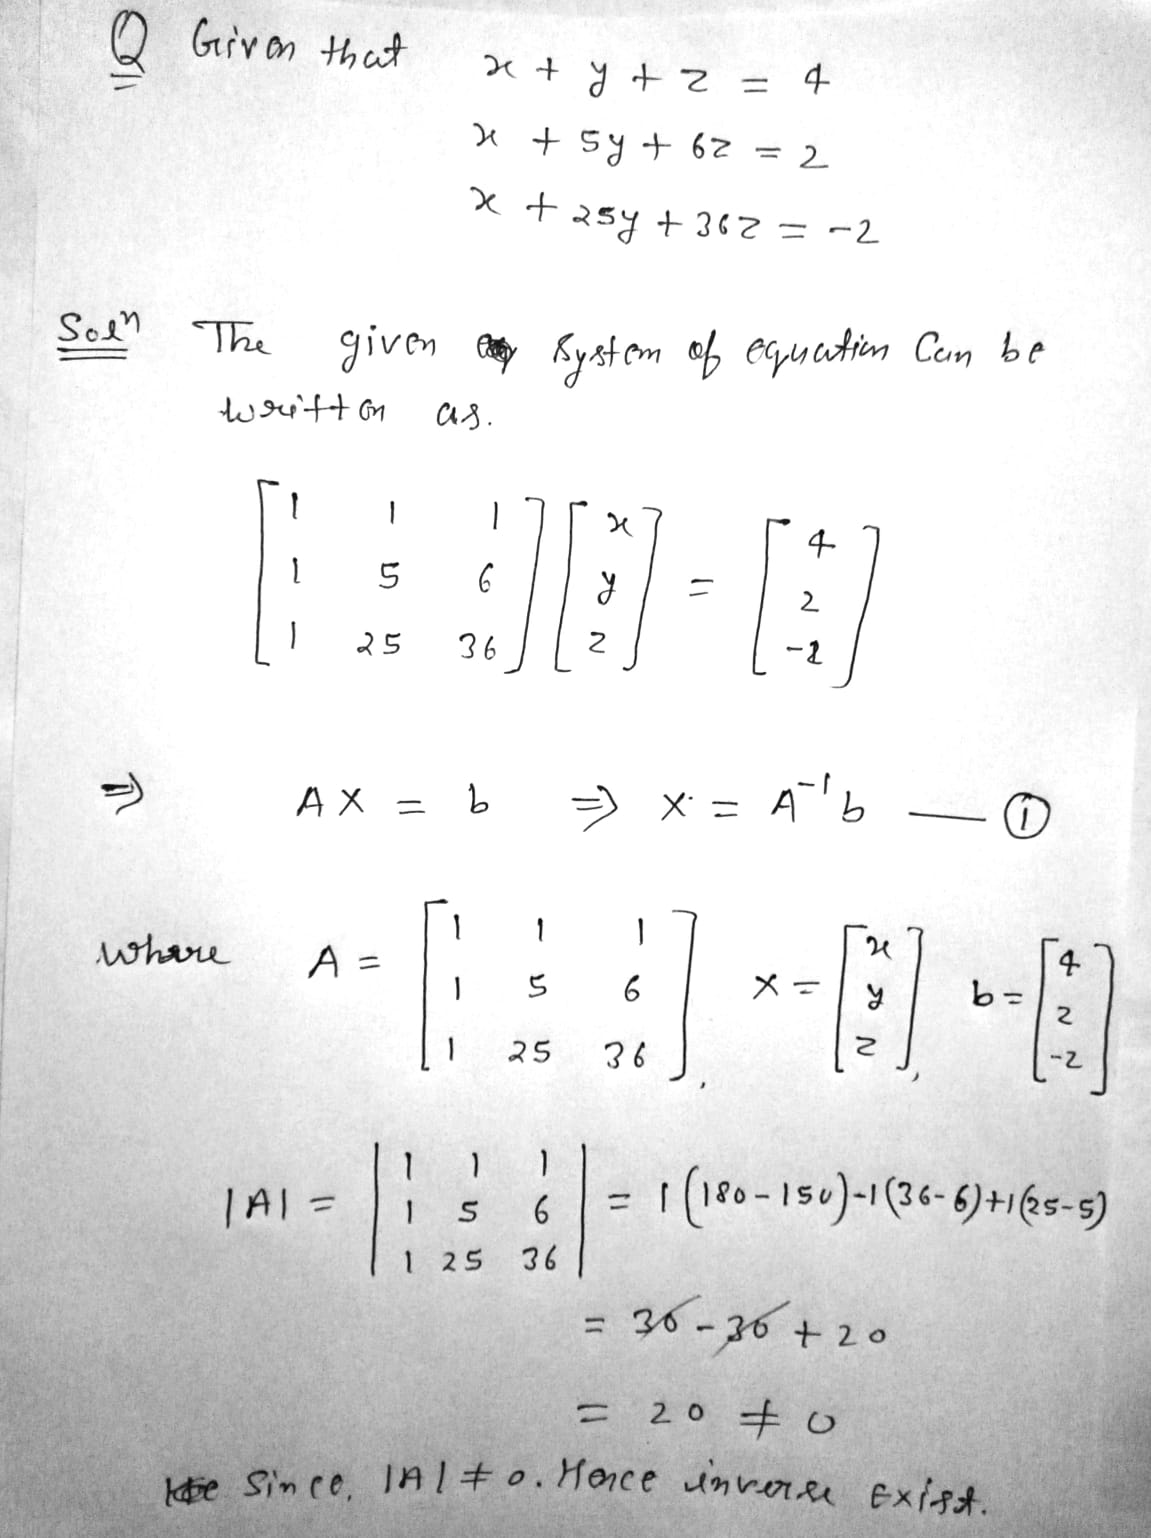 Q Given that x + y + z = 4
x + 5y + 6z = 2
x + 25y + 36z = -2
Soln The given system of equation can be
written as.
[1 1 1] [x] = [4]
[1 5 6] [y] [2]
[1 25 36] [z] [-2]
⇒ AX = b ⇒ X = A⁻¹b — ①
where A = [1 1 1; 1 5 6; 1 25 36], X = [x; y; z], b = [4; 2; -2]
|A| = |1 1 1; 1 5 6; 1 25 36| = 1(180-150)-1(36-6)+1(25-5)
= 30 - 30 + 20
= 20 ≠ 0
Since, |A| ≠ 0. Hence inverse exist.